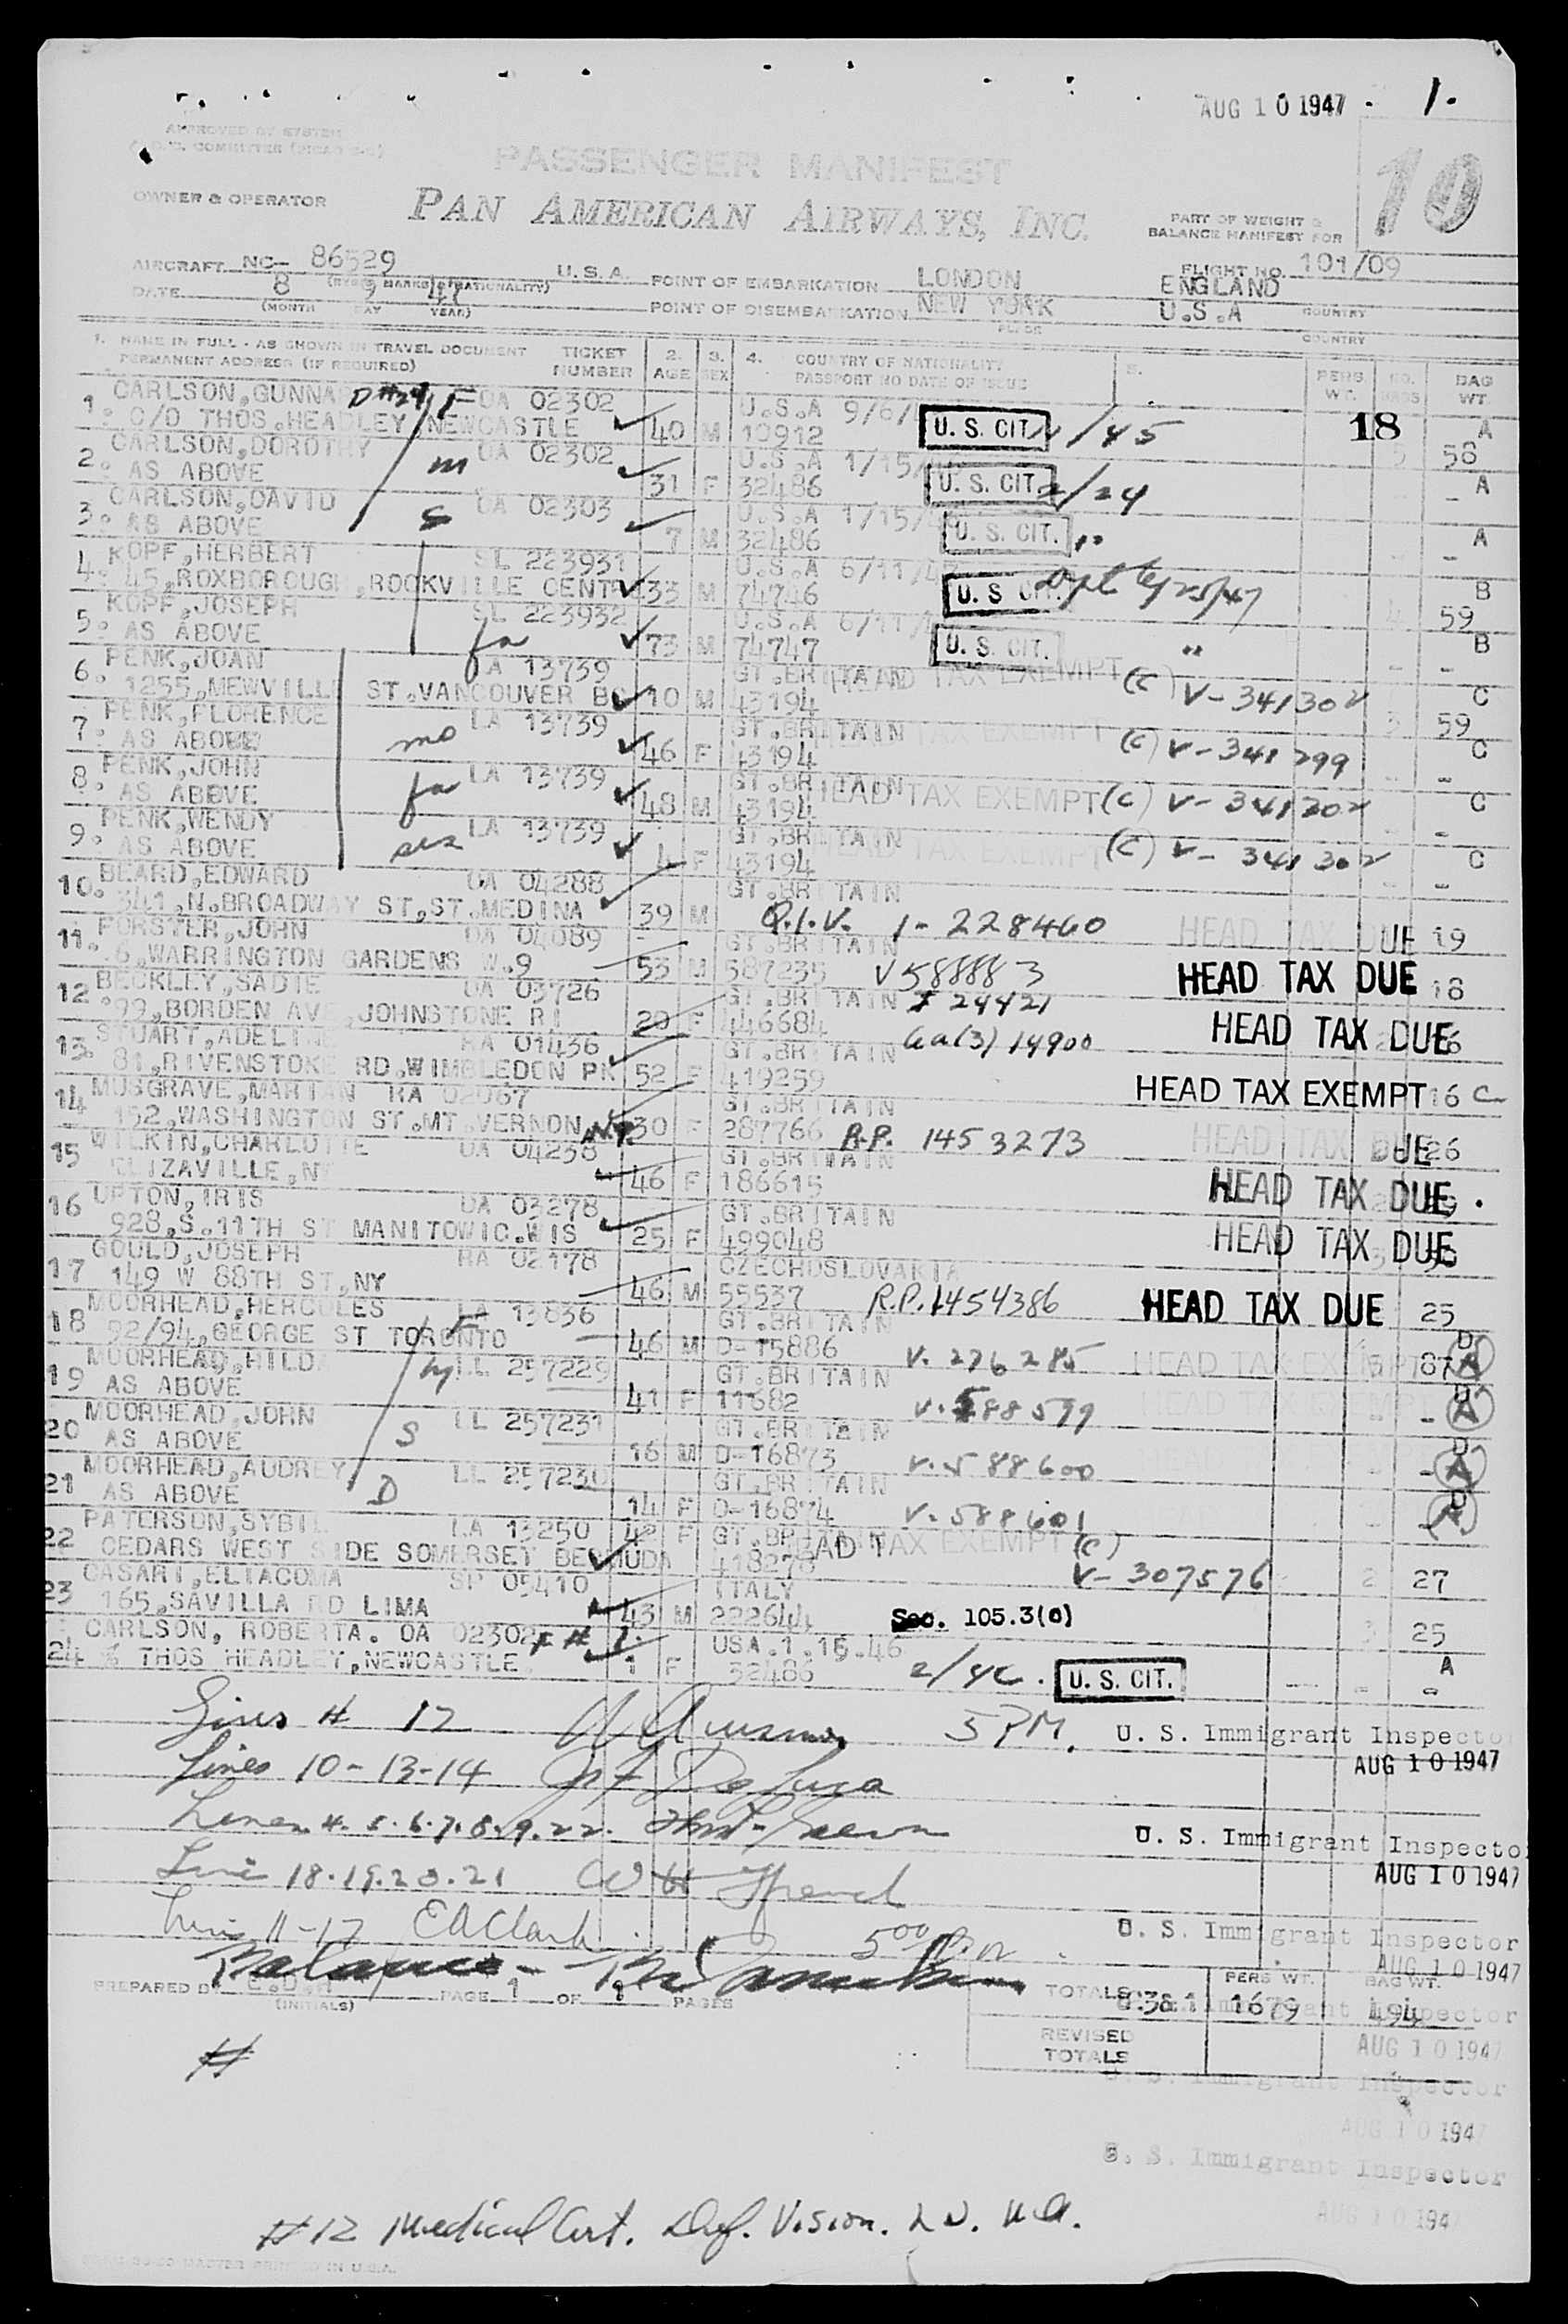 AUG 10 1947 1.
APPROVED BY SYSTEM
PASSENGER MANIFEST
10
OWNER & OPERATOR
PAN AMERICAN AIRWAYS, INC.
PART OF WEIGHT &
BALANCE MANIFEST FOR
AIRCRAFT NC- 86529 U.S.A. POINT OF EMBARKATION LONDON ENGLAND FLIGHT NO. 101/09
DATE 8 9 47 POINT OF DISEMBARKATION NEW YORK U.S.A COUNTRY
(MONTH DAY YEAR) PLACE COUNTRY
1. NAME IN FULL - AS SHOWN IN TRAVEL DOCUMENT TICKET 2. 3. 4. COUNTRY OF NATIONALITY 5. PERS NO. BAG
PERMANENT ADDRESS (IF REQUIRED) NUMBER AGE SEX PASSPORT NO DATE OF ISSUE WT. BAGS WT.
1. CARLSON,GUNNAR F OA 02302 U.S.A 9/6/
C/O THOS.HEADLEY,NEWCASTLE 40 M 10912 U. S. CIT. /45 18 A
2. CARLSON,DOROTHY m OA 02302 U.S.A 1/15/ 3 58
AS ABOVE 31 F 32486 U. S. CIT. 2/24 - A
3. CARLSON,DAVID S OA 02303 U.S.A 1/15/
AS ABOVE 7 M 32486 U. S. CIT. " - A
4. KOPF,HERBERT SL 223931 U.S.A 6/11/47
45,ROXBOROUGH,ROCKVILLE CENT 33 M 74746 U. S CIT. B
5. KOPF,JOSEPH SL 223932 U.S.A 6/11/ 59
AS ABOVE fa 73 M 74747 U. S. CIT. " B
6. PENK,JOAN LA 13739 GT.BRITAIN HEAD TAX EXEMPT (C) - -
1255,MEWVILLE ST.VANCOUVER BC 10 M 43194 V-341302 C
7. PENK,FLORENCE LA 13739 GT.BRITAIN TAX EXEMPT (C) 3 59
AS ABOVE mo 46 F 43194 V-341299 C
8. PENK,JOHN LA 13739 GT.BRITAIN HEAD TAX EXEMPT (C) - -
AS ABOVE fa 48 M 43194 V-341302 C
9. PENK,WENDY LA 13739 GT.BRITAIN HEAD TAX EXEMPT (C) - -
AS ABOVE sis 4 F 43194 V-341302 C
10. BEARD,EDWARD OA 04288 GT.BRITAIN - -
341,N.BROADWAY ST,ST.MEDINA 39 M Q.I.V. 1-228460
11. FORSTER,JOHN OA 04089 GT.BRITAIN HEAD TAX DUE 19
6,WARRINGTON GARDENS W.9 53 M 587235 V588883
12 BECKLEY,SADIE OA 03726 GT.BRITAIN I 24421 HEAD TAX DUE 18
99,BORDEN AV,JOHNSTONE RI 20 F 446684 6a(3) 14900
13. STUART,ADELINE RA 01436 GT.BRITAIN HEAD TAX DUE
81,RIVENSTOKE RD.WIMBLEDON PK 52 F 419259
14 MUSGRAVE,MARIAN RA 02067 GT.BRITAIN HEAD TAX EXEMPT 16 C
152,WASHINGTON ST.MT.VERNON,NY 30 F 287766 R.P. 1453273
15 WILKIN,CHARLOTTE OA 04238 GT.BRITAIN HEAD TAX DUE 26
ELIZAVILLE,NY 46 F 186615
16 UPTON,IRIS OA 03278 GT.BRITAIN HEAD TAX DUE
928,S.11TH ST MANITOWIC.WIS 25 F 499048
17 GOULD,JOSEPH RA 02178 CZECHOSLOVAKIA HEAD TAX DUE
149 W 88TH ST,NY 46 M 55537 R.P. 1454386
18 MOORHEAD,HERCULES LA 13836 GT.BRITAIN HEAD TAX DUE 25
92/94,GEORGE ST TORONTO F 46 M D-15886 V. 276285 D
19 MOORHEAD,HILDA LL 257229 GT.BRITAIN HEAD TAX EXEMPT 87 A
AS ABOVE 41 F 11682 V.588599 D
20 MOORHEAD,JOHN LL 257231 GT.BRITAIN HEAD TAX EXEMPT - A
AS ABOVE S 16 M D-16873 V.588600 D
21 MOORHEAD,AUDREY LL 257230 GT.BRITAIN - A
AS ABOVE D 14 F D-16874 V.588601 D
22 PATERSON,SYBIL LA 13250 F GT.BRITAIN HEAD TAX EXEMPT (C) A
CEDARS WEST SIDE SOMERSET BERMUDA 418278 V-307576
23 CASARI,ELIACOMA SP 05410 ITALY 2 27
165,SAVILLA RD LIMA 43 M 222644 Sec. 105.3(0)
CARLSON, ROBERTA. OA 02302 F # 1. USA.1.15.46 3 25
24 % THOS HEADLEY,NEWCASTLE 1 F 32486 2/46. U. S. CIT. A
Lines # 12 5 PM. U. S. Immigrant Inspector
AUG 10 1947
Lines 10-13-14
Lines 4. 5. 6. 7. 8. 9. 22. U. S. Immigrant Inspector
AUG 10 1947
Line 18. 19. 20. 21 W H French
Lines 11-17 EA Clark 5 00 P.m U. S. Immigrant Inspector
AUG 10 1947
Balance-
PREPARED BY (INITIALS) PAGE 1 OF 1 PAGES
PERS WT. BAG WT.
TOTALS 1679 494
U. S. Immigrant Inspector
REVISED TOTALS
AUG 10 1947
U. S. Immigrant Inspector
#
AUG 10 1947
U. S. Immigrant Inspector
AUG 10 194
#12 Medical Cert. Def. Vision.